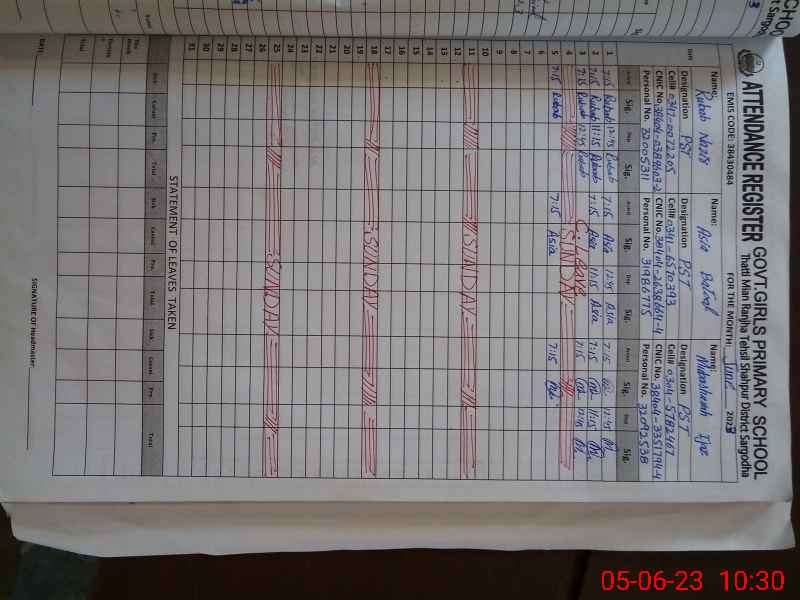 ATTENDANCE REGISTER GOVT.GIRLS PRIMARY SCHOOL
Thatti Mian Ranjha Tehsil Shahpur District Sargodha
EMIS CODE: 38430484 FOR THE MONTH: June 2023
Name: Rubab Name: Asia Batool Name:
Designation PST Designation PST Designation PST
Cell# 0347-0072205 Cell# 0341-6570393 Cell# 0304-5782407
CNIC No. CNIC No. CNIC No.
Personal No. 32005311 Personal No. 31986775 Personal No. 32092538
Sig. Dep Sig. Sig. Dep Sig. Sig. Dep Sig.
1 7:15 Rubab 12:45 Rubab 7:15 Asia 12:45 Asia 7:15 12:45
2 7:15 Rubab 11:15 Rubab 7:15 Asia 11:15 Asia 7:15 11:15
3 7:15 Rubab 12:45 Rubab C. Leave 7:15 12:45
4 SUNDAY
5 7:15 Rubab 7:15 Asia 7:15
6
7
8
9
10
11 SUNDAY
12
13
14
15
16
17
18 SUNDAY
19
20
21
22
23
24
25 SUNDAY
26
27
28
29
30
31
STATEMENT OF LEAVES TAKEN
Sick Casual Pre. Total Sick Casual Pre. Total Sick. Casual Pre. Total
Total
DATE
SIGNATURE OF Headmaster
05-06-23 10:30